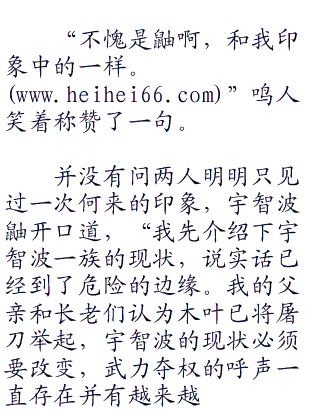 “不愧是鼬啊，和我印
象中的一样。
(www.heihei66.com)”鸣人
笑着称赞了一句。
并没有问两人明明只见
过一次何来的印象，宇智波
鼬开口道，“我先介绍下宇
智波一族的现状，说实话已
经到了危险的边缘。我的父
亲和长老们认为木叶已将屠
刀举起，宇智波的现状必须
要改变，武力夺权的呼声一
直存在并有越来越